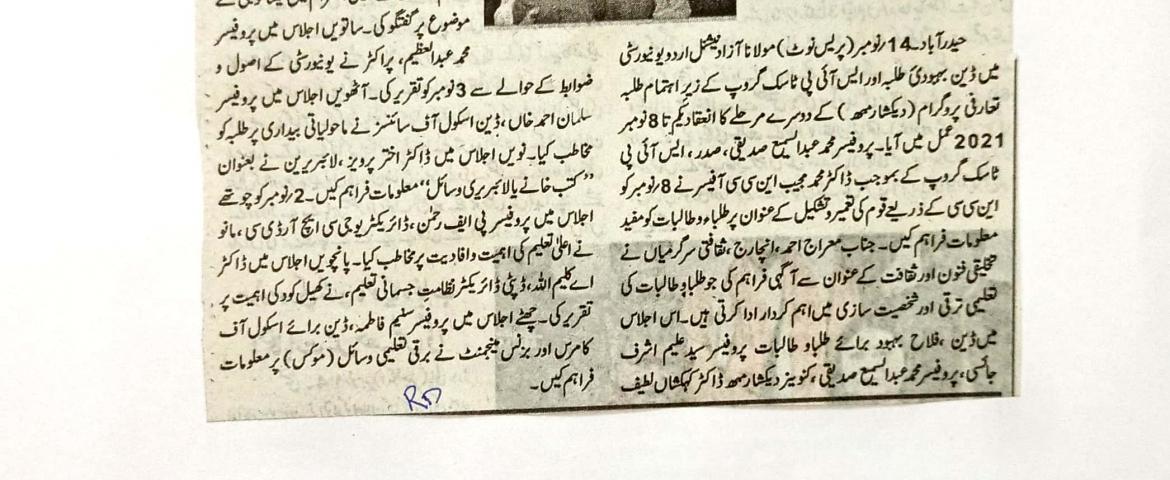 حیدرآباد۔14؍نومبر(پریس نوٹ) مولانا آزاد نیشنل اردو یونیورسٹی
میں ڈین بہبودیٔ طلبہ اور ایس آئی پی ٹاسک گروپ کے زیر اہتمام طلبہ
تعارفی پروگرام (دیکشارمبھ) کے دوسرے مرحلے کا انعقاد یکم تا 8 نومبر
2021 عمل میں آیا۔ پروفیسر محمد عبدالسمیع صدیقی، صدر، ایس آئی پی
ٹاسک گروپ کے بموجب ڈاکٹر محمد مجیب این سی سی آفیسر نے 8؍نومبر کو
این سی سی کے ذریعے قوم کی تعمیر و تشکیل کے عنوان پر طلباء و طالبات کو مفید
معلومات فراہم کیں۔ جناب معراج احمد، انچارج، ثقافتی سرگرمیاں نے
تخلیقی فنون اور ثقافت کے عنوان سے آگہی فراہم کی جو طلبا و طالبات کی
تعلیمی ترقی اور شخصیت سازی میں اہم کردار ادا کرتی ہیں۔ اس اجلاس
میں ڈین، فلاح بہبود برائے طلبا و طالبات پروفیسر سید علیم اشرف
جائسی، پروفیسر محمد عبدالسمیع صدیقی، کنوینر دیکشارمبھ ڈاکٹر کہکشاں لطیف
موضوع پر گفتگو کی۔ ساتویں اجلاس میں پروفیسر
محمد عبدالعظیم، پراکٹر نے یونیورسٹی کے اصول و
ضوابط کے حوالے سے 3 نومبر کو تقریر کی۔ آٹھویں اجلاس میں پروفیسر
سلمان احمد خاں، ڈین اسکول آف سائنسز نے ماحولیاتی بیداری پر طلبہ کو
مخاطب کیا۔ نویں اجلاس میں ڈاکٹر اختر پرویز، لائبریرین نے بعنوان
”کتب خانے یا لائبریری وسائل“ معلومات فراہم کیں۔ 2؍نومبر کو چوتھے
اجلاس میں پروفیسر پی ایف رحمٰن، ڈائریکٹر یو جی سی ایچ آر ڈی سی، مانو
نے اعلیٰ تعلیم کی اہمیت و افادیت پر مخاطب کیا۔ پانچویں اجلاس میں ڈاکٹر
اے کلیم اللہ، ڈپٹی ڈائریکٹر نظامت جسمانی تعلیم، نے کھیل کود کی اہمیت پر
تقریر کی۔ چھٹے اجلاس میں پروفیسر سنیم فاطمہ، ڈین برائے اسکول آف
کامرس اور بزنس مینجمنٹ نے برقی تعلیمی وسائل (موکس) پر معلومات
فراہم کیں۔